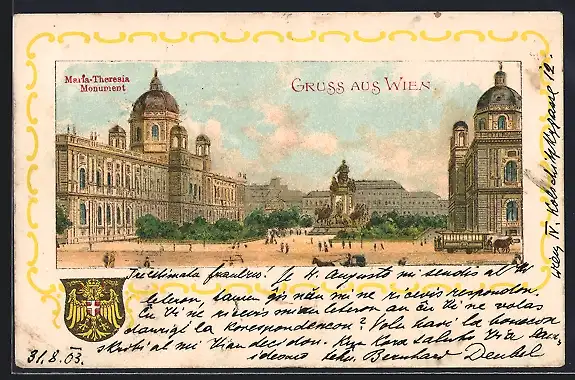 Maria-Theresia
Monument
GRUSS AUS WIEN.
Treestimata fraulino! Je 4. Augusto mi sendis al Vi
leteron, tamen ĝis nun mi ne ricevis respondon.
Ĉu Vi ne ricevis mian leteron aŭ ĉu Vi ne volas
daŭrigi la korespondencon? Volu havi la bonecon
skribi al mi Vian decidon. Kun kora saluto Via
Bernhard Deubel
31.8.03.
Wien IV. Kolschitzkygasse 12.